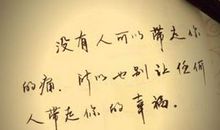 没有人可以带走你
的痛．所以也别让任何
人带走你的幸福．